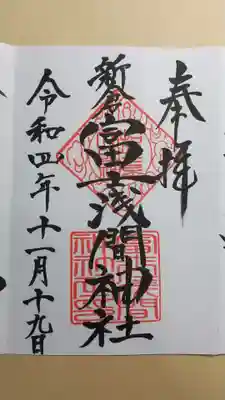 奉拝
新倉富士浅間神社
令和四年十一月十九日